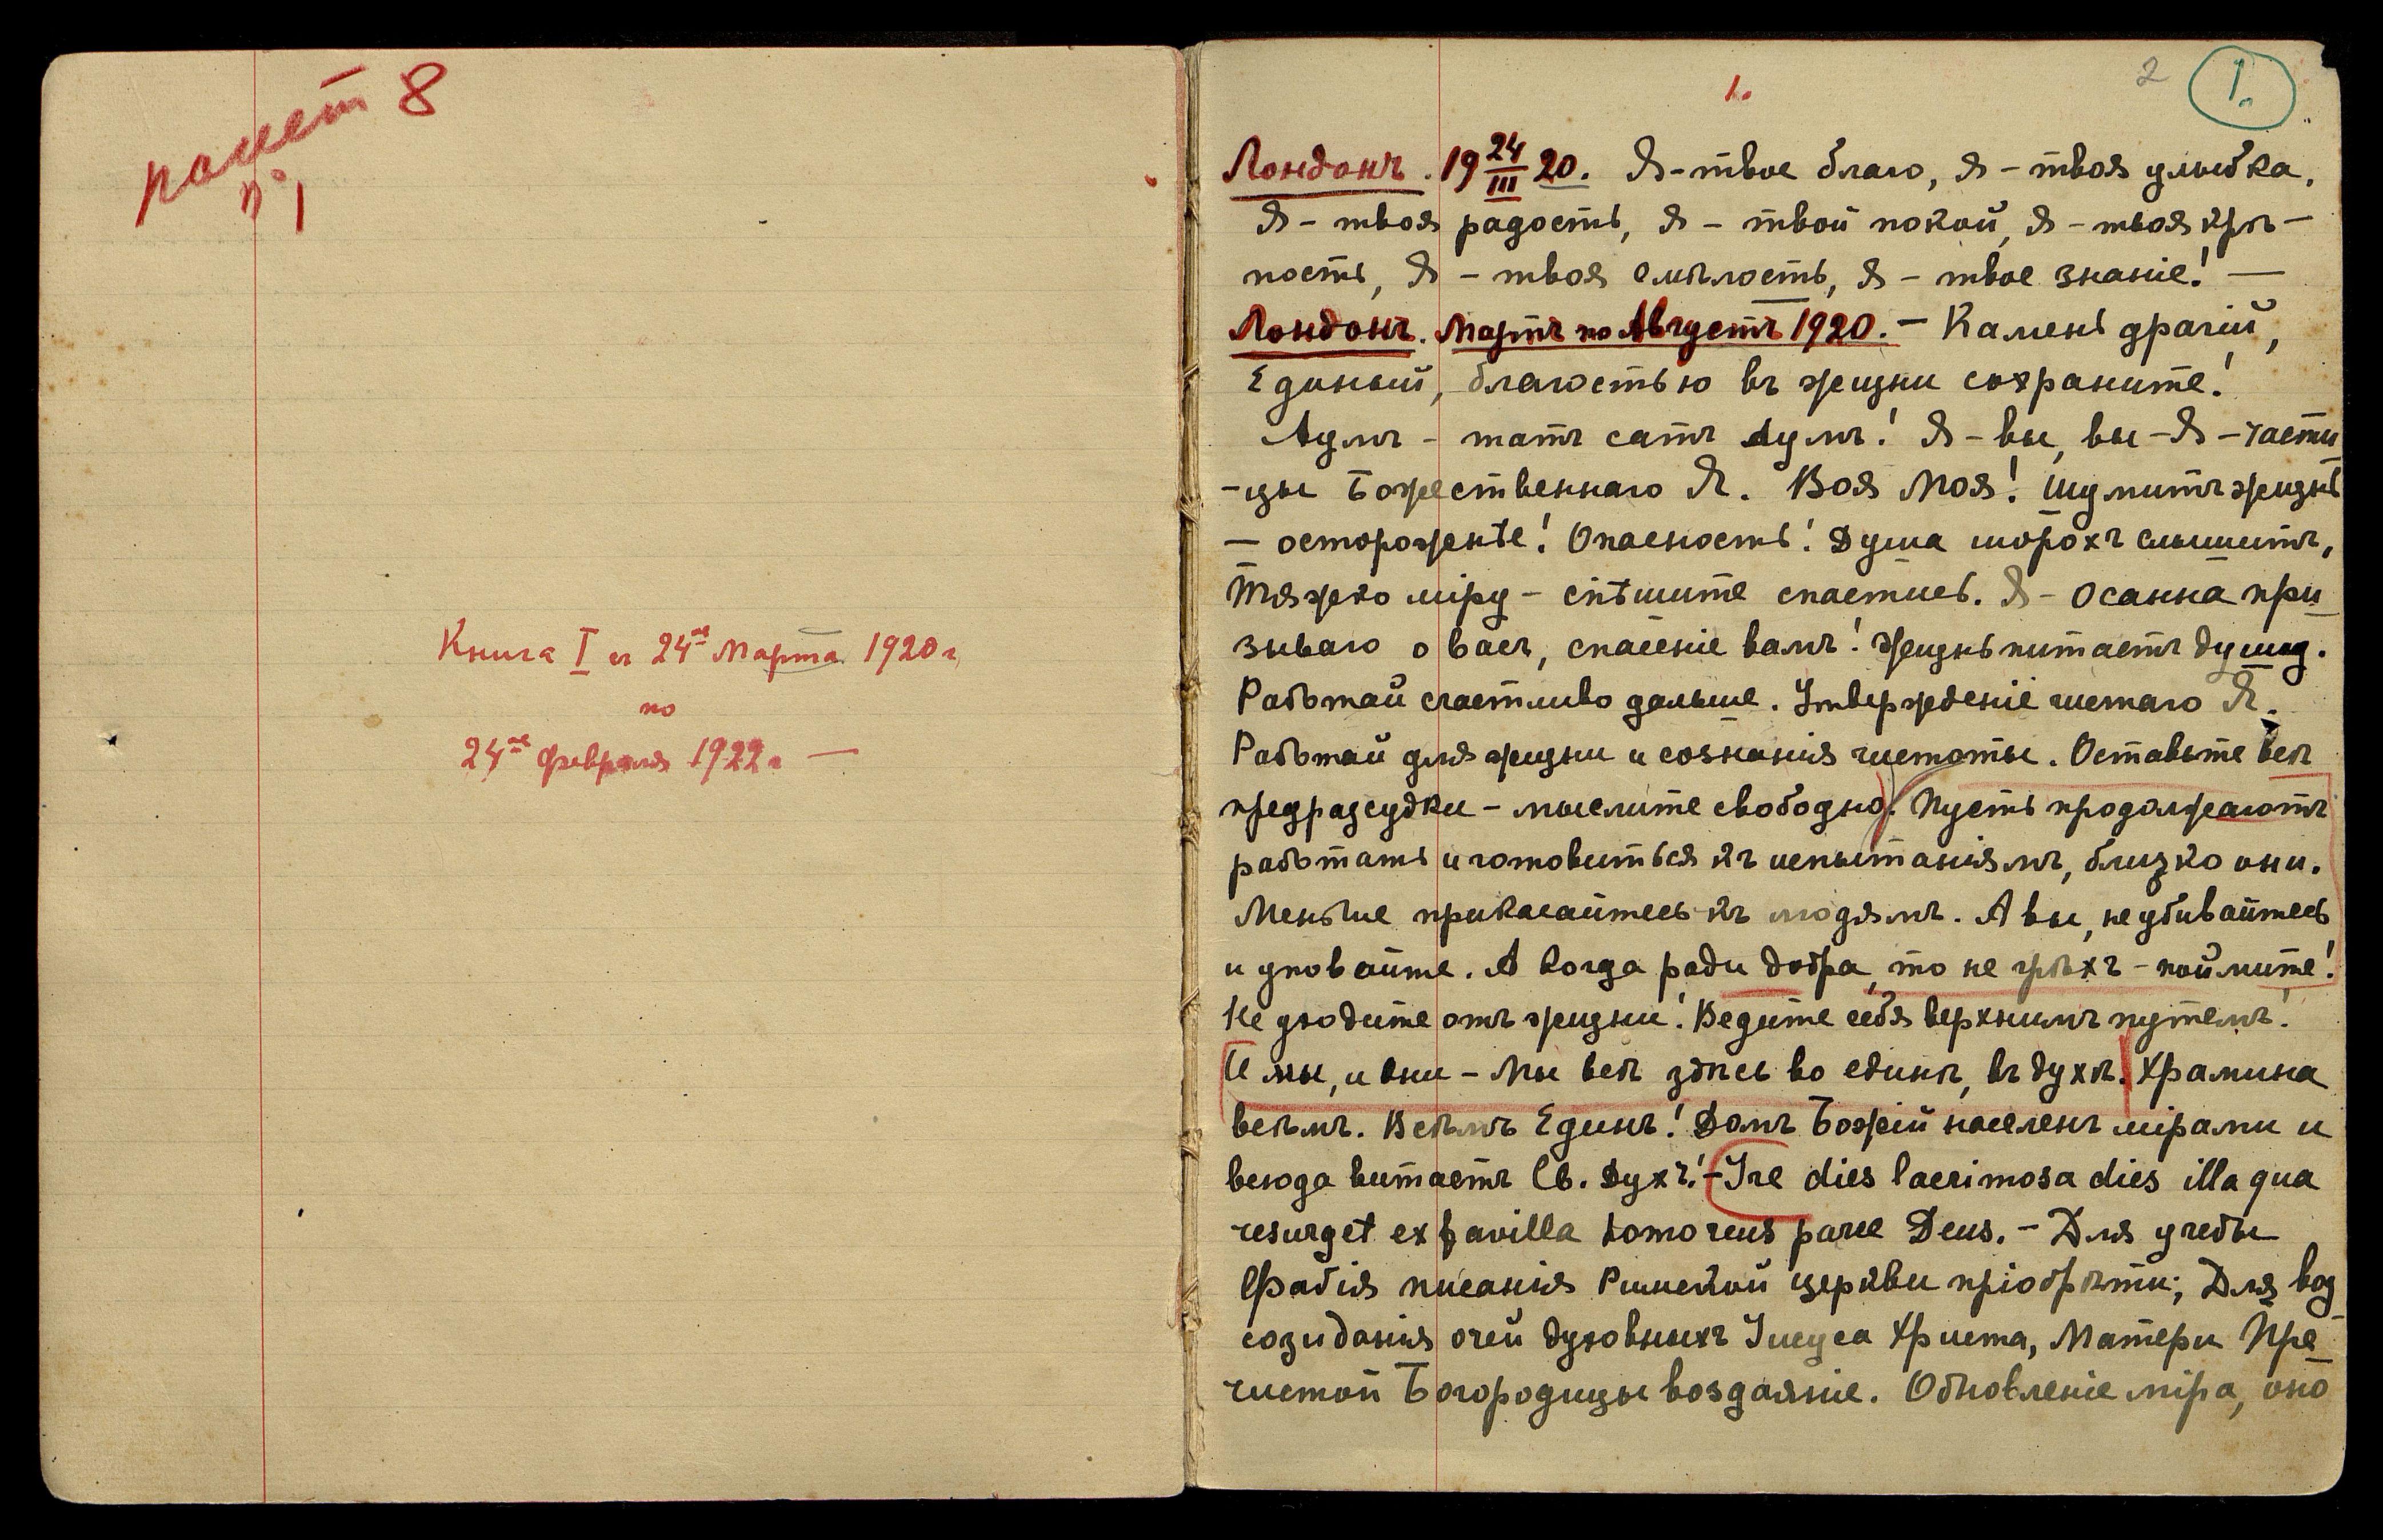 пакет 8
№ 1
Книга I съ 24го Марта 1920 г.
по
24ое Февраля 1922 г. —
1.
2
1.
Лондонъ. 19 24/III 20. Я - твое благо, Я - твоя улыбка,
Я - твоя радость, Я - твой покой, Я - твоя крѣ-
пость, Я - твоя смѣлость, Я - твое знаніе! —
Лондонъ. Мартъ по Августъ 1920. - Камень драгій,
Единый, благостью въ жизни сохраните!
Аумъ - татъ сатъ Аумъ! Я - вы, вы - Я - части
-цы Божественнаго Я. Воя Моя! Шумитъ жизнь
- осторожнѣе! Опасность! Душа шорохъ слышитъ,
Тяжко міру - спѣшите спастись. Я - Осанна при
зываю о васъ, спасеніе вамъ! Жизнь питаетъ душу.
Работай счастливо дальше. Утвержденіе чистаго Я.
Работай для жизни и сознанія чистоты. Оставьте всѣ
предразсудки - мыслите свободно. Пусть продолжаютъ
работать и готовиться къ испытаніямъ, близко они.
Меньше прикасайтесь къ людямъ. А вы, не убивайтесь
и уповайте. А когда ради добра, то не грѣхъ - поймите!
Не уходите отъ жизни! Ведите себя верхнимъ путемъ!
И мы, и они - Мы всѣ здѣсь во единѣ, въ духѣ. Храмина
всѣмъ. Всѣмъ Единъ! Домъ Божій населенъ мірами и
всюда витаетъ Св. Духъ! - Ire dies lacrimosa dies illa qua
resurget ex favilla homo reus parce Deus. - Для учебы
Фабія писанія Римской церкви пріобрѣти; Для воз
созиданія очей духовныхъ Іисуса Христа, Матери Пре
чистой Богородицы воздаяніе. Обновленіе міра, оно